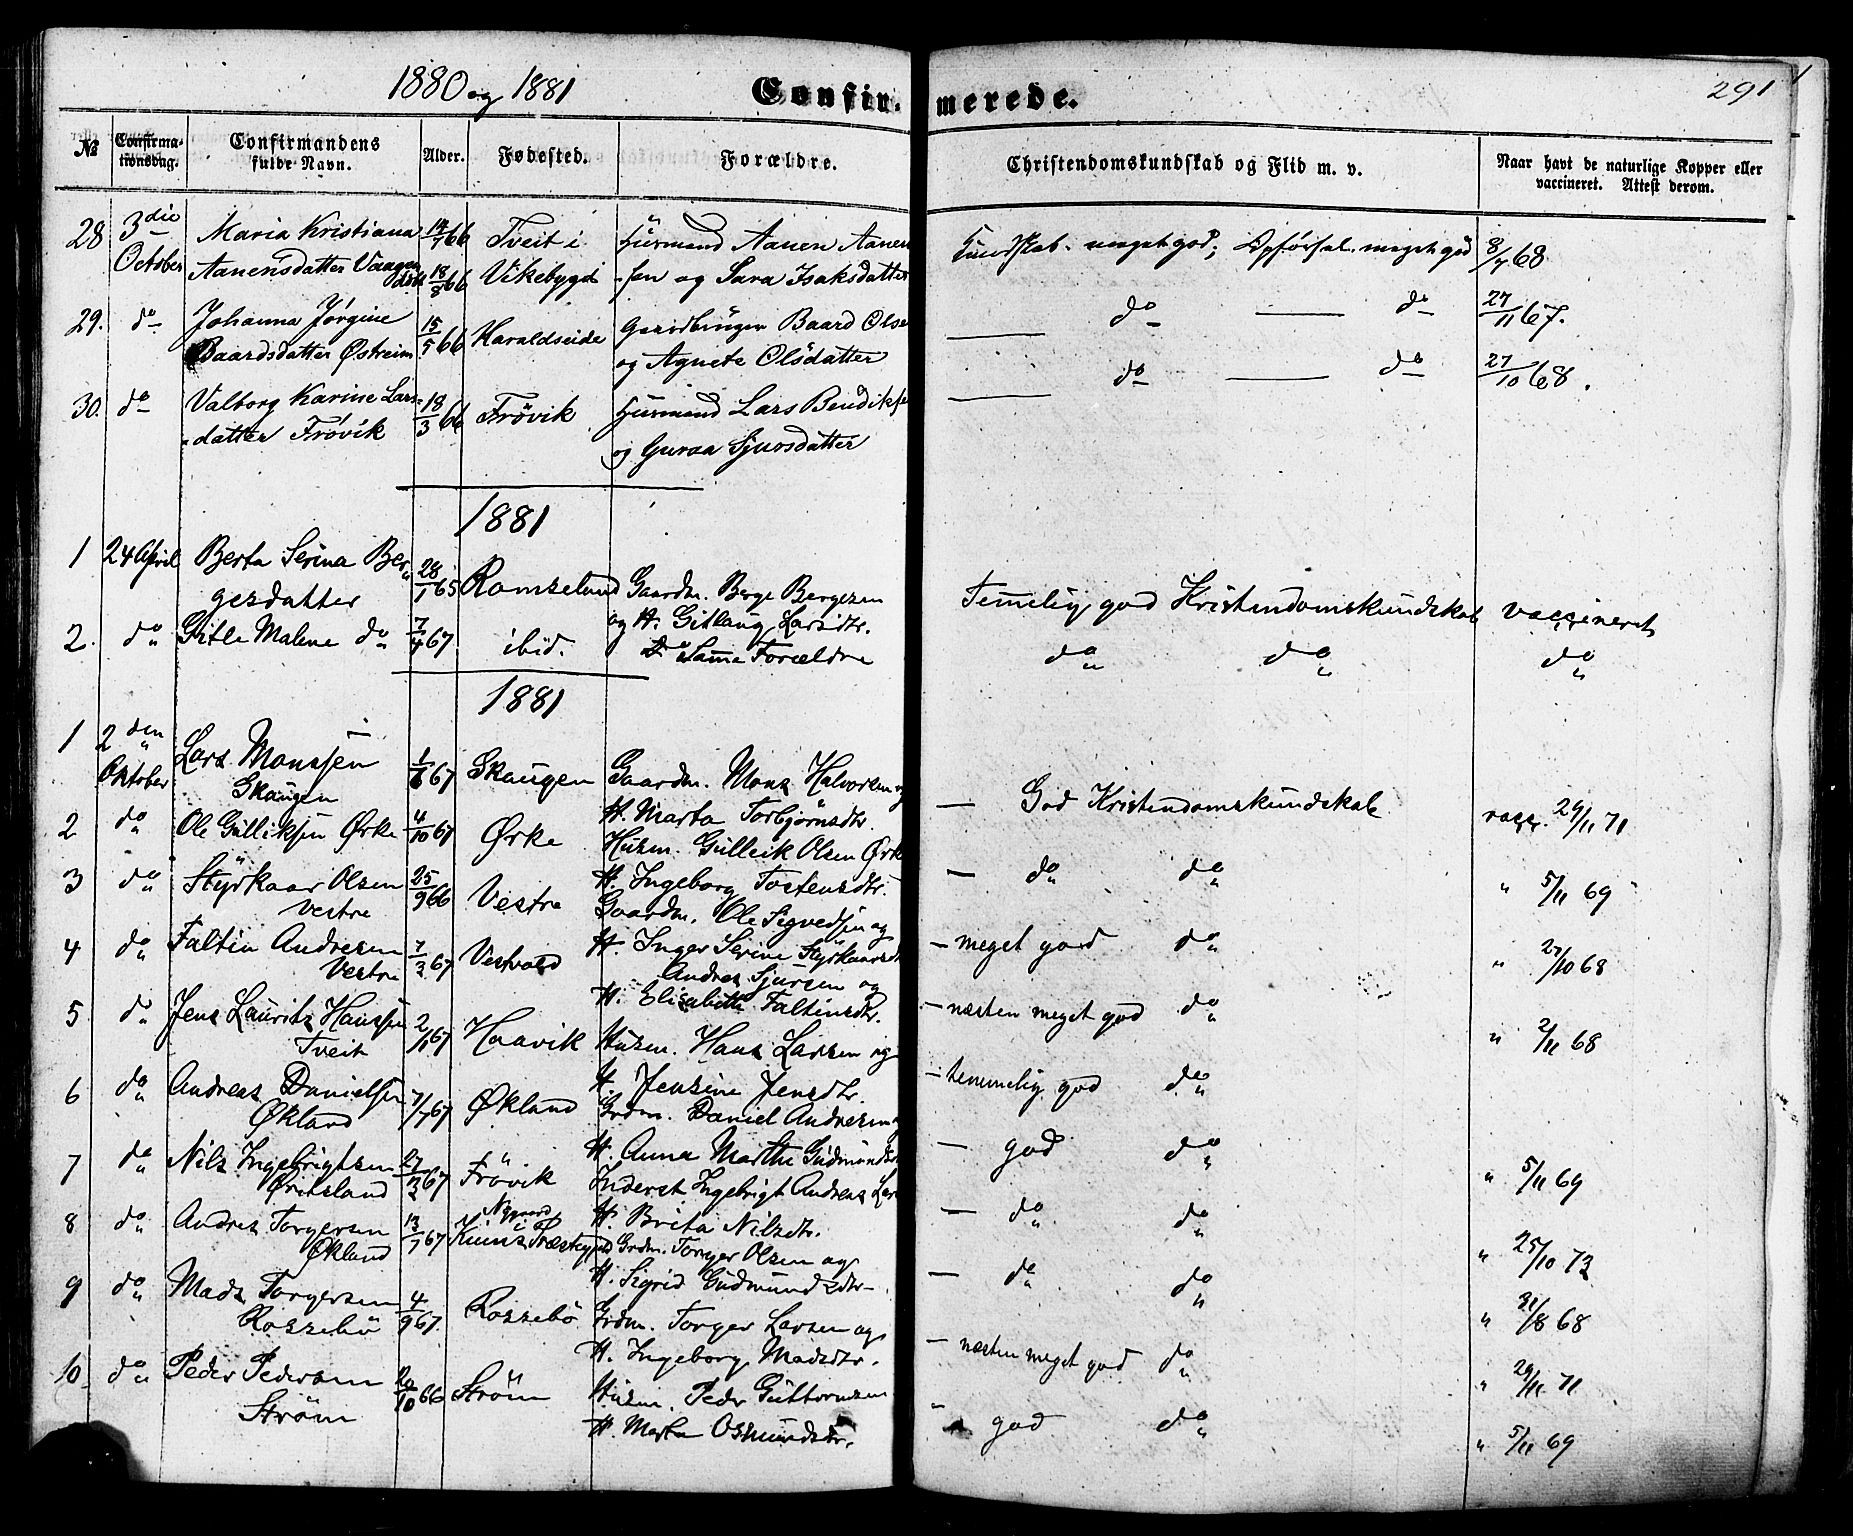 1880 og 1881
Confirmerede.
291
№
Confirmationsdag.
Confirmandens fulde Navn.
Alder.
Fødested.
Forældre.
Christendomskundskab og Flid m. v.
Naar havt de naturlige Kopper eller vaccineret. Attest derom.
28 3die Maria Kristiana 14/7 66 Tveit i Husmand Aanen Aanen Kundskab meget god; Opførsel meget god 8/7 68
October Aanensdatter Vaagen 18/8 66 Vikebygd -sen og Sara Isaksdatter
29. do Johanna Jørgine 15/5 66 Haraldseide Gaardbruger Baard Olse do do 27/11 67.
Baardsdatter Østreim og Agnete Olsdatter
30. do Valborg Karine Lars- 18/3 66 Frövik Husmand Lars Bendikse do do 27/10 68.
datter Frövik og Guroa Sjursdatter
1881
1 24 April Berta Serina Ber- 28/1 65 Romselund Gaardm. Berge Bergesen Temmelig god Kristendomskundskab vaccineret
gesdatter og H. Gitlaug Larsdtr.
2. do Gitle Malene do 7/4 67 ibid. Samme Forældre do do do
1881
1 2den Lars Monssen 1/6 67 Skaugen Gaardm. Mons Halvorsen og — God Kristendomskundskab vacc. 29/11 71
Oktober Skaugen H. Marta Torbjørnsdtr.
2 do Ole Gulliksen Ørke 4/10 67 Ørke Husm. Gulleik Olsen Ørk — do do " 5/11 69
H. Ingeborg Tostensdtr.
3 do Styrkaar Olsen 25/9 66 Vestre Gaardm. Ole Sigvedsen og — meget god do " 27/10 68
Vestre H. Inger Serine Styrkaarsdt
4 do Faltin Andresen 7/3 67 Vestvold Andres Sjursen og — næsten meget god do " 2/11 68
Vestre H. Elisabeth Faltinsdtr.
5 do Jens Lauritz Hanssen 2/11 67 Haavik Husm. Hans Larsen og — temmelig god do
Tveit H. Jensine Jensdtr.
6 do Andreas Danielsen 7/7 67 Økland Grdm. Daniel Andresen og — god do " 5/11 69
Økland H. Anna Marthe Gudmunds
7 do Nils Ingebrigtsen 27/2 67 Frövik Inderst Ingebrigt Andreas Lar — do do " 25/10 72
Øritsland H. Brita Nilsdtr.
8 do Andres Torgersen 13/7 67 Nygaard i Grdm. Torger Olsen og — do do " 31/8 68
Økland H. Sigrid Gudmundsdtr
9 do Mads Torgersen 4/9 67. Rossebö Grdm. Torger Larsen og — næsten meget god do " 29/11 71
Rossebö H. Ingeborg Madsdtr.
10 do Peder Pedersen 20/10 66 Ström Husm. Peder Guttormsen " god do " 5/11 69
Ström H. Marta Osmundsdtr.